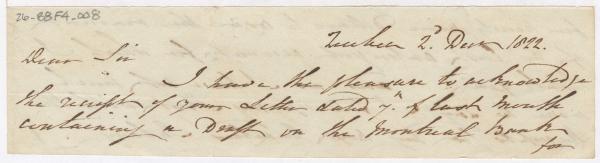 26-88F4-008
Quebec 2d Decr 1822.
Dear Sir
I have the pleasure to acknowledge
the receipt of your Letter dated 7th of last month
containing a Draft on the Montreal Bank
for